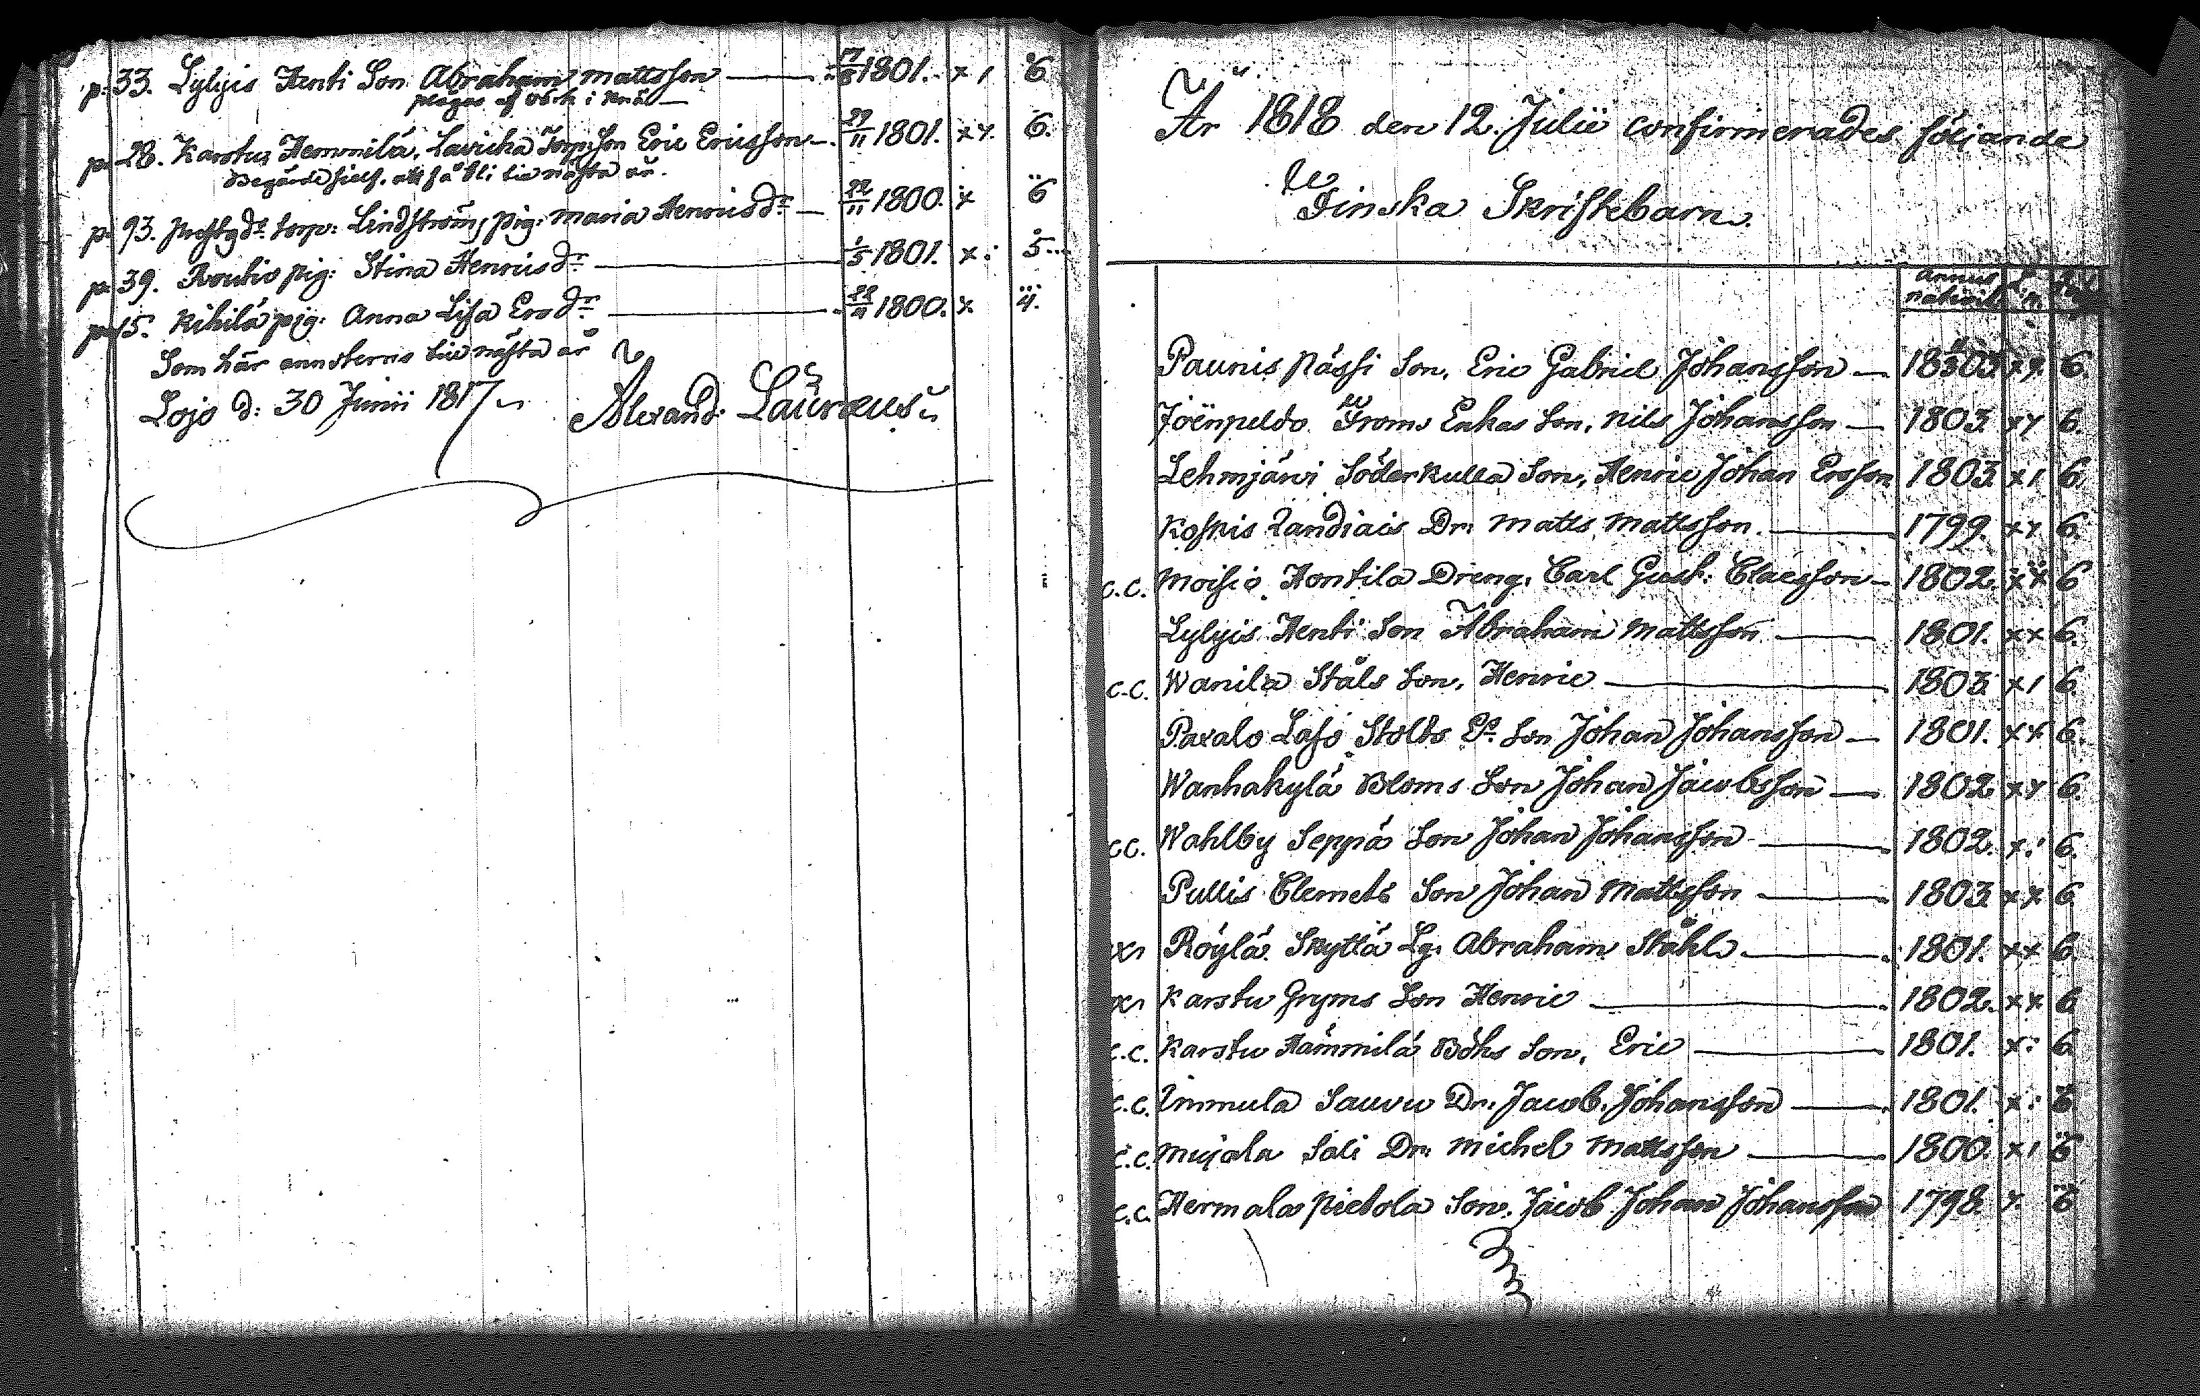 p. 33. Lylyis Henti Son Abraham Mattsson — 1801. x 1 6
plågas af värk i knä —
p. 28. Karstu Hemmilä, Lavicka Torp. Son Eric Ericsson — 27/11 1801. x x. 6.
Begärde sjelf. att få bli till nästa år.
p. 93. Prestgds torp: Lindström, pig: Maria Henricsdr — 22/11 1800. x 6
p. 39. Routio pig: Stina Henricsdr — 1/5 1801. x: 5
p. 15. Kihilä pig: Anna Lisa Ersdr — 1800. x. 4.
Som här annoteras till nästa år
Lojo d: 30 Junii 1817
Alexand: Lauræus
År 1818 den 12. Julii confirmerades följande
Finska Skriftebarn.
Annus nativit.
Paunis Pässi Son, Eric Gabriel Johansson — 1803 x x. 6.
Joënpeldo Froms Enkas Son, Nils Johansson — 1803. x x 6.
Lehmjärvi Söderkulla Son, Henric Johan Ersson 1803. x 1. 6.
Koskis Landiais Dr: Matts Mattsson. — 1799. x x. 6.
c.c. Moisio Hontila Dreng. Carl Gust: Claesson — 1802. x x 6
Lylyis Henti Son Abraham Mattsson — 1801. x x 6.
c.c. Wanila Ståls Son, Henric — 1803. x 1 6.
Paxalo Laso Stolts Son Johan Johansson — 1801. x x 6.
Wanhakylä Bloms Son Johan Jacobsson — 1802. x x 6.
c.c. Wahlby Seppä Son Johan Johansson — 1802. x: 6.
Pullis Clemets Son Johan Mattsson — 1803 x x 6
Röylä Skyttä Lg. Abraham Ståhl — 1801. x x 6.
Karstu Gryms Son Henric — 1802. x x. 6
c.c. Karstu Hämmilä Böhs Son, Eric — 1801. x: 6
c.c. Immula Sauvu Dr: Jacob Johansson — 1801. x: 6
c.c. Muijala Sali Dr: Michel Mattsson — 1800. x 1 6
c.c. Hermala Pietola Son. Jacob Johan Johansson 1798. x. 6